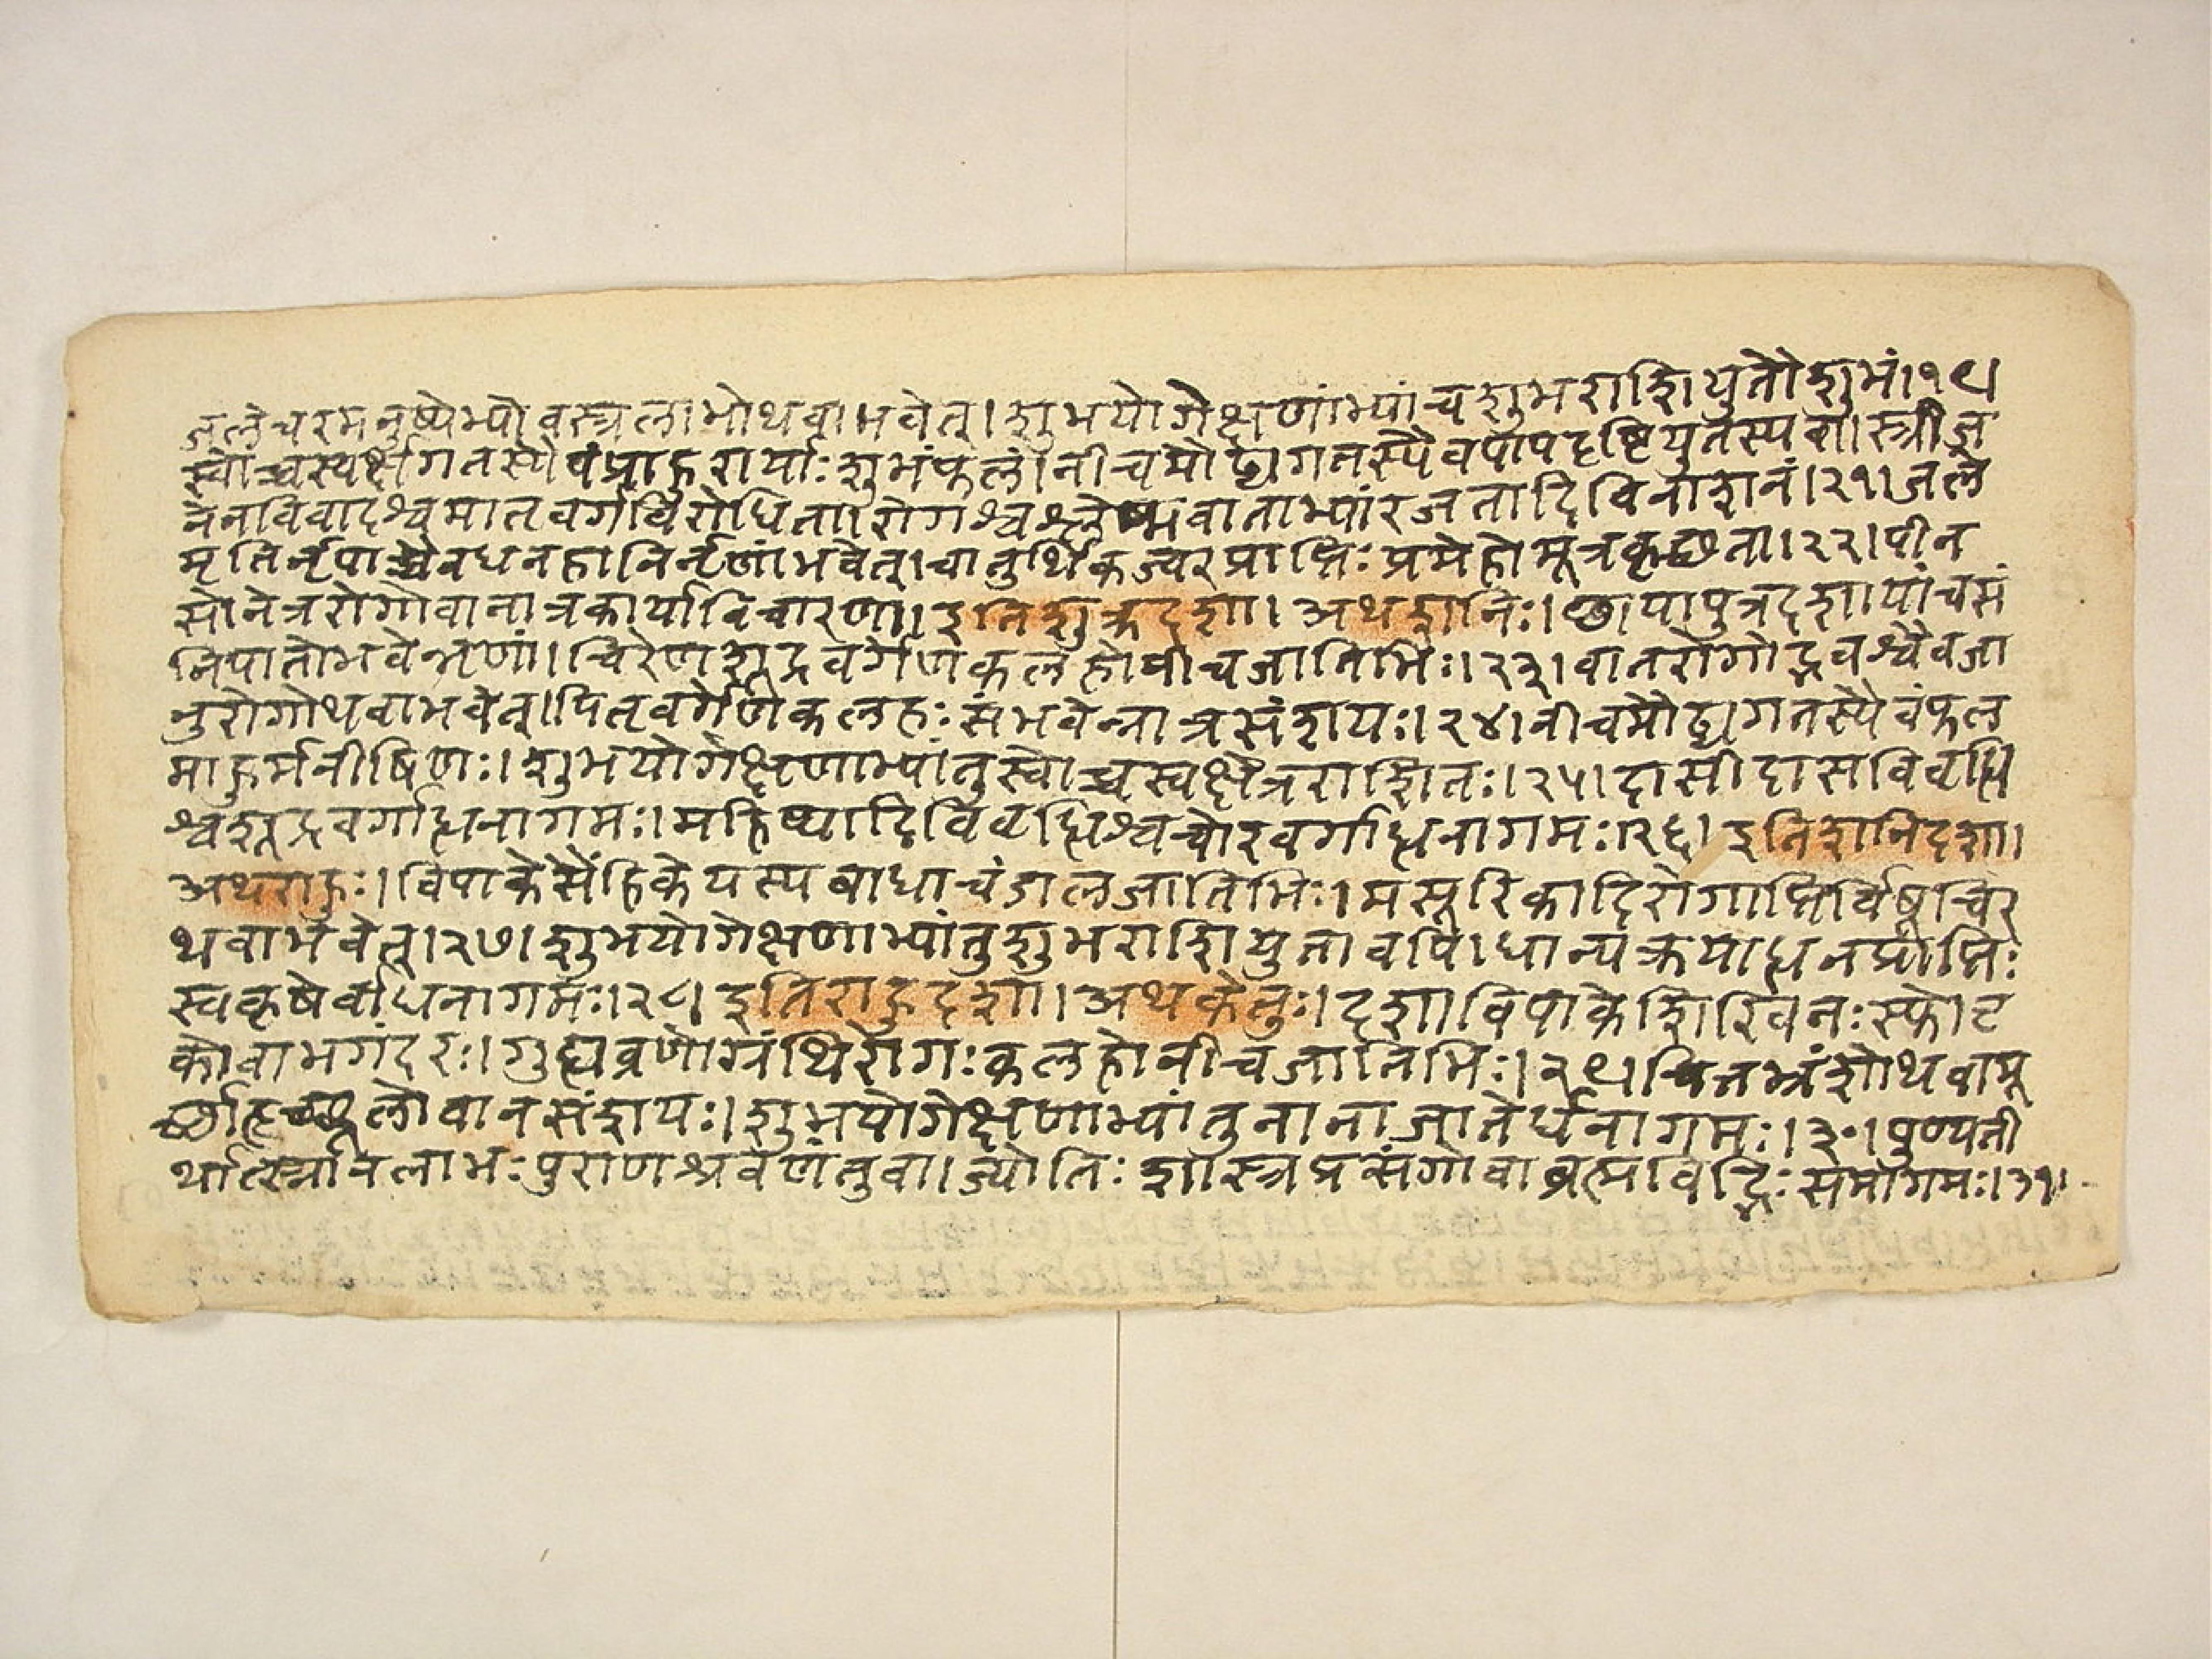 जलेचरमनुष्येभ्योवस्त्रलाभोथवाभवेत्। शुभयोगेक्षणांभ्यांचशुभराशियुतोशुभं।१९।
स्वोच्चस्वर्क्षगतस्यैवंप्राहुरार्याःशुभंफलं।नीचमौढ्यगतस्यैवपापदृष्टियुतस्यवा।स्त्रीज
नेनविवादश्चमातवर्गविरोधिता।रोगश्चश्लेष्मवाताभ्यांरजतादिविनाशनं।२१।जले
मृतिर्नृपाच्चैवधनहानिर्नृणांभवेत्।चातुर्थिकज्वरप्राप्तिःप्रमेहोमूत्रकृछ्रता।२२।पीन
सोनेत्ररोगोवानात्रकार्याविचारणा।इतिशुक्रदशा। अथशनिः।छायापुत्रदशायांचसं
निपातोभवेन्नृणां।चिरेणशूद्रवर्गेणकलहोनीचजातिभिः।२३।वातरोगोद्भवश्चैवजा
नुरोगोथवाभवेत्।पितृवर्गेणकलहःसंभवेन्नात्रसंशयः।२४।नीचमौढ्यगतस्यैवंफल
माहुर्मनीषिणः।शुभयोगेक्षणाभ्यांतुस्वोच्चस्वक्षेत्रराशितः।२५।दासीदासविवृद्धि
श्चशूद्रवर्गाद्धनागमः।महिष्यादिविवृद्धिश्चचोरवर्गाद्धनागमः।२६। इतिशनिदशा।
अथराहुः।विपाकेसैंहिकेयस्यबाधाचंडालजातिभिः।मसूरिकादिरोगाप्तिर्विषूचिर
थवाभवेत्।२७।शुभयोगेक्षणाभ्यांतुशुभराशियुतावपि।धान्यक्रयाद्धनप्राप्तिः
स्वकृषेर्वाधनागमः।२८।इतिराहुदशा।अथकेतुः।दशाविपाकेशिखिनःस्फोट
कोवाभगंदरः।गुह्यव्रणोग्रंथिरोगःकलहोनीचजातिभिः।२९।चित्तभ्रंशोथवामू
लोवानसंशयः।शुभयोगेक्षणाभ्यांतुनानाजातेर्धनागमः।३०।पुण्यती
र्थात्स्नानलाभःपुराणश्रवणंतुवा।ज्योतिःशास्त्रप्रसंगोवाब्रह्मविद्भिःसमागमः।३१।